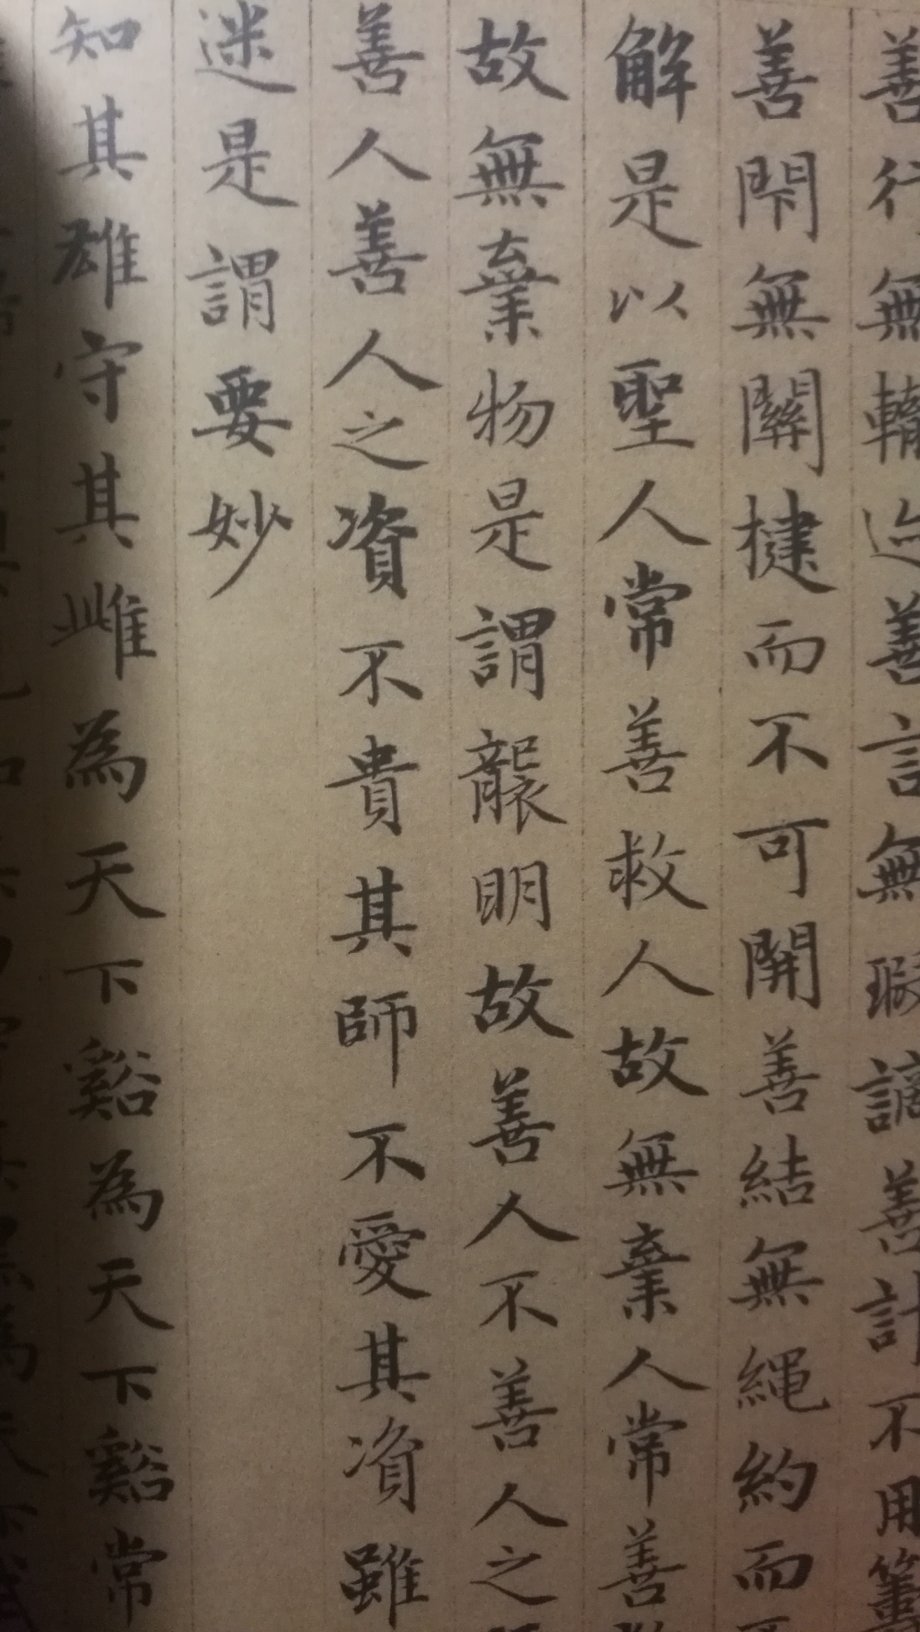 善行無轍迹善言無瑕謫善計不用籌
善閇無關揵而不可開善結無繩約而不
解是以聖人常善救人故無棄人常善救
故無棄物是謂襲明故善人不善人之師
善人善人之資不貴其師不愛其資雖
迷是謂要妙
知其雄守其雌為天下谿為天下谿常